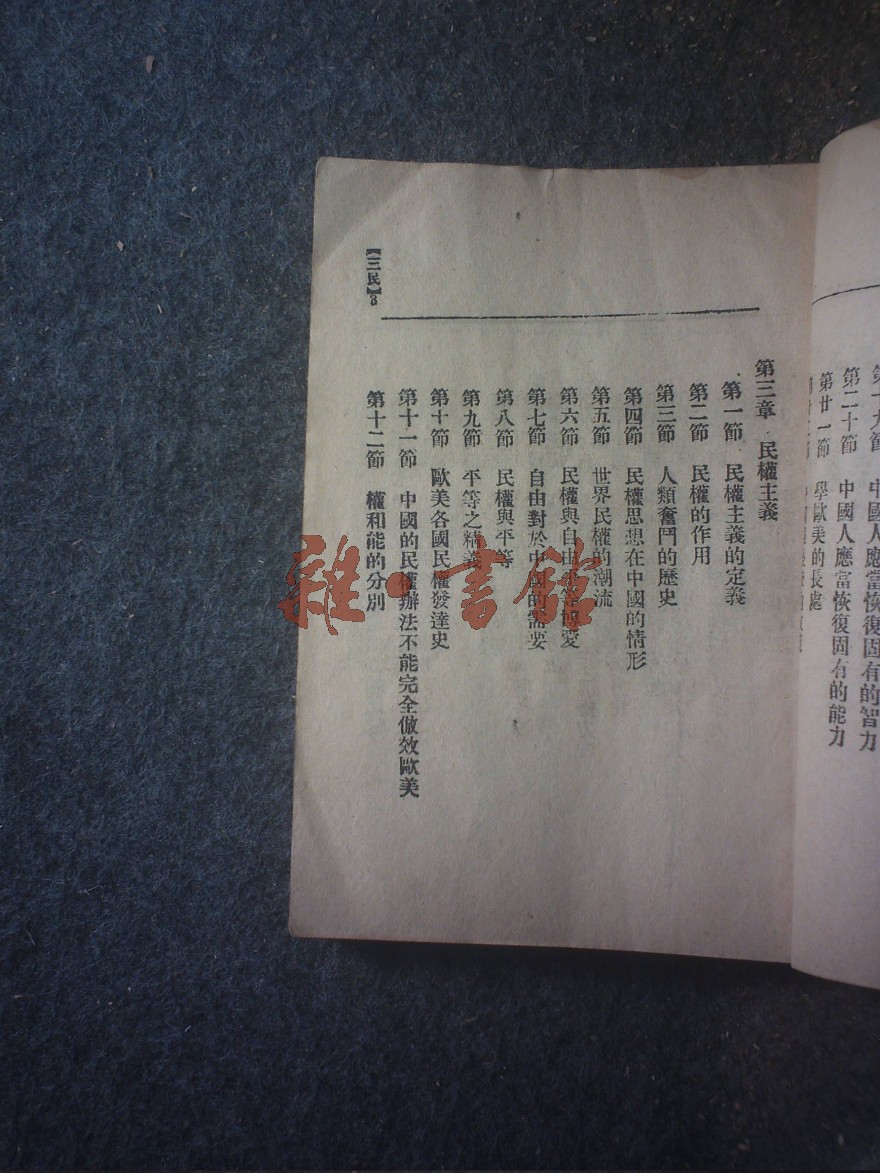 中國人應當恢復固有的智力
第二十節 中國人應當恢復固有的能力
第廿一節 學歐美的長處
第三章 民權主義
第一節 民權主義的定義
第二節 民權的作用
第三節 人類奮鬥的歷史
第四節 民權思想在中國的情形
第五節 世界民權的潮流
第六節 民權與自由平等博愛
第七節 自由對於中國的需要
第八節 民權與平等
第九節 平等之精義
第十節 歐美各國民權發達史
第十一節 中國的民權辦法不能完全倣效歐美
第十二節 權和能的分別
【三民】3
雜書館